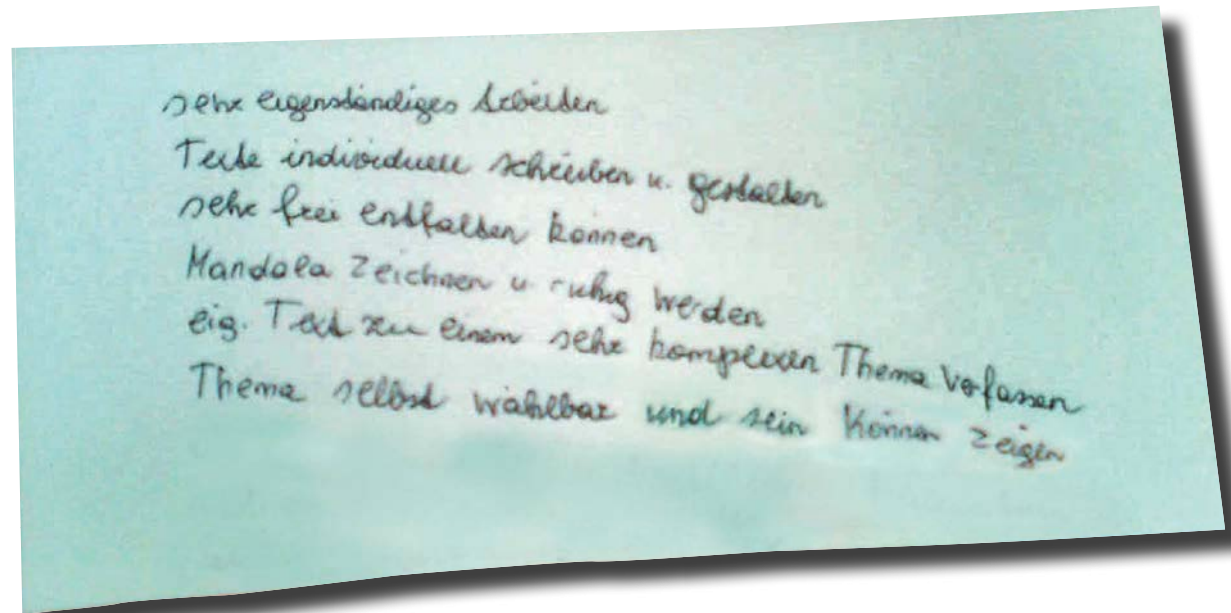 sehr eigenständiges Arbeiten
Texte individuell schreiben u. gestalten
sehr frei entfalten können
Mandala zeichnen u. ruhig werden
eig. Text zu einem sehr komplexen Thema verfassen
Thema selbst wählbar und sein Können zeigen